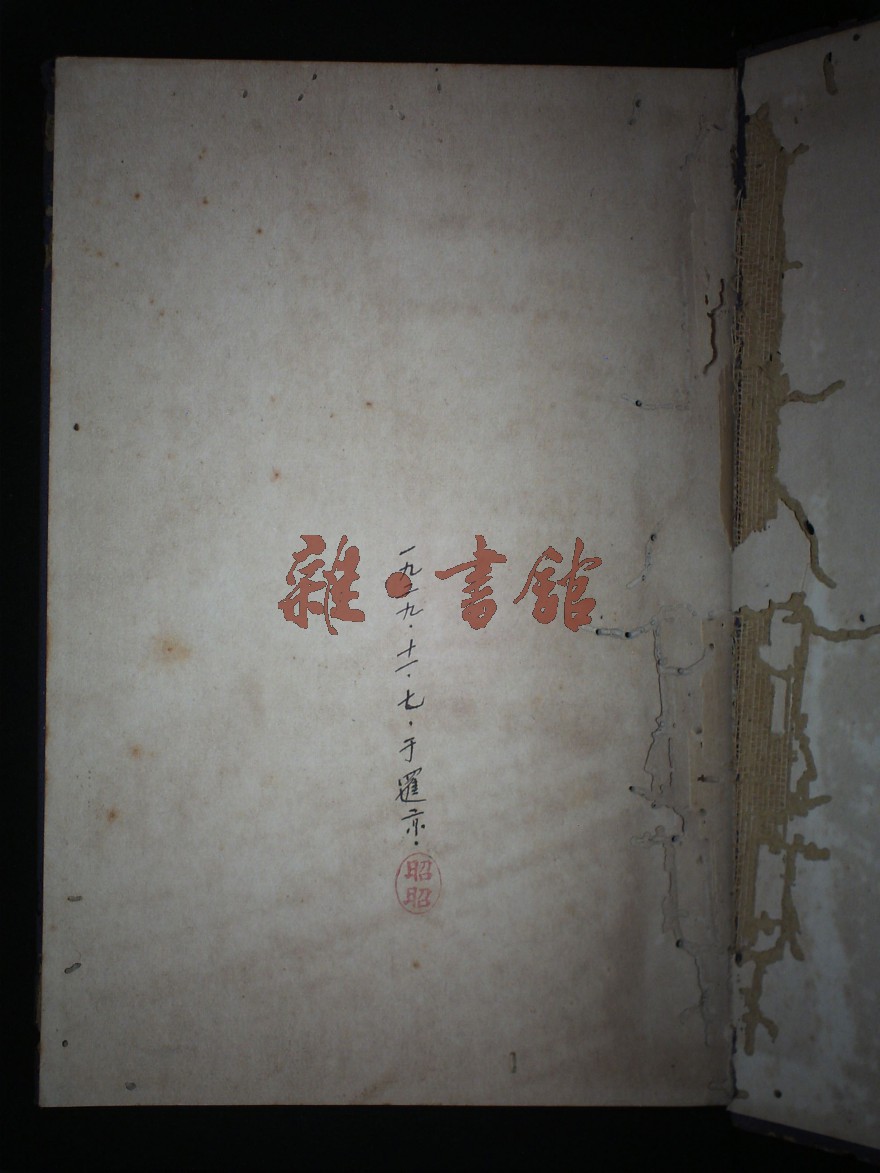 雜·書館
一九二九·十一·七·于暹京·
昭昭